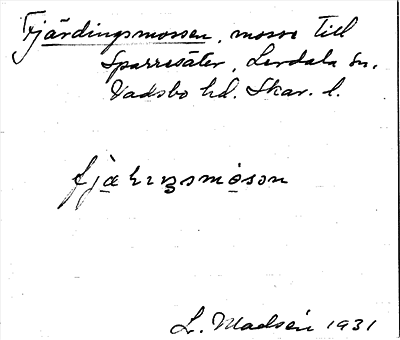 Fjärdingsmossen, mosse till
Sparresäter, Lerdala sn.
Vadsbo hd. Skar. l.
L. Madsén 1931